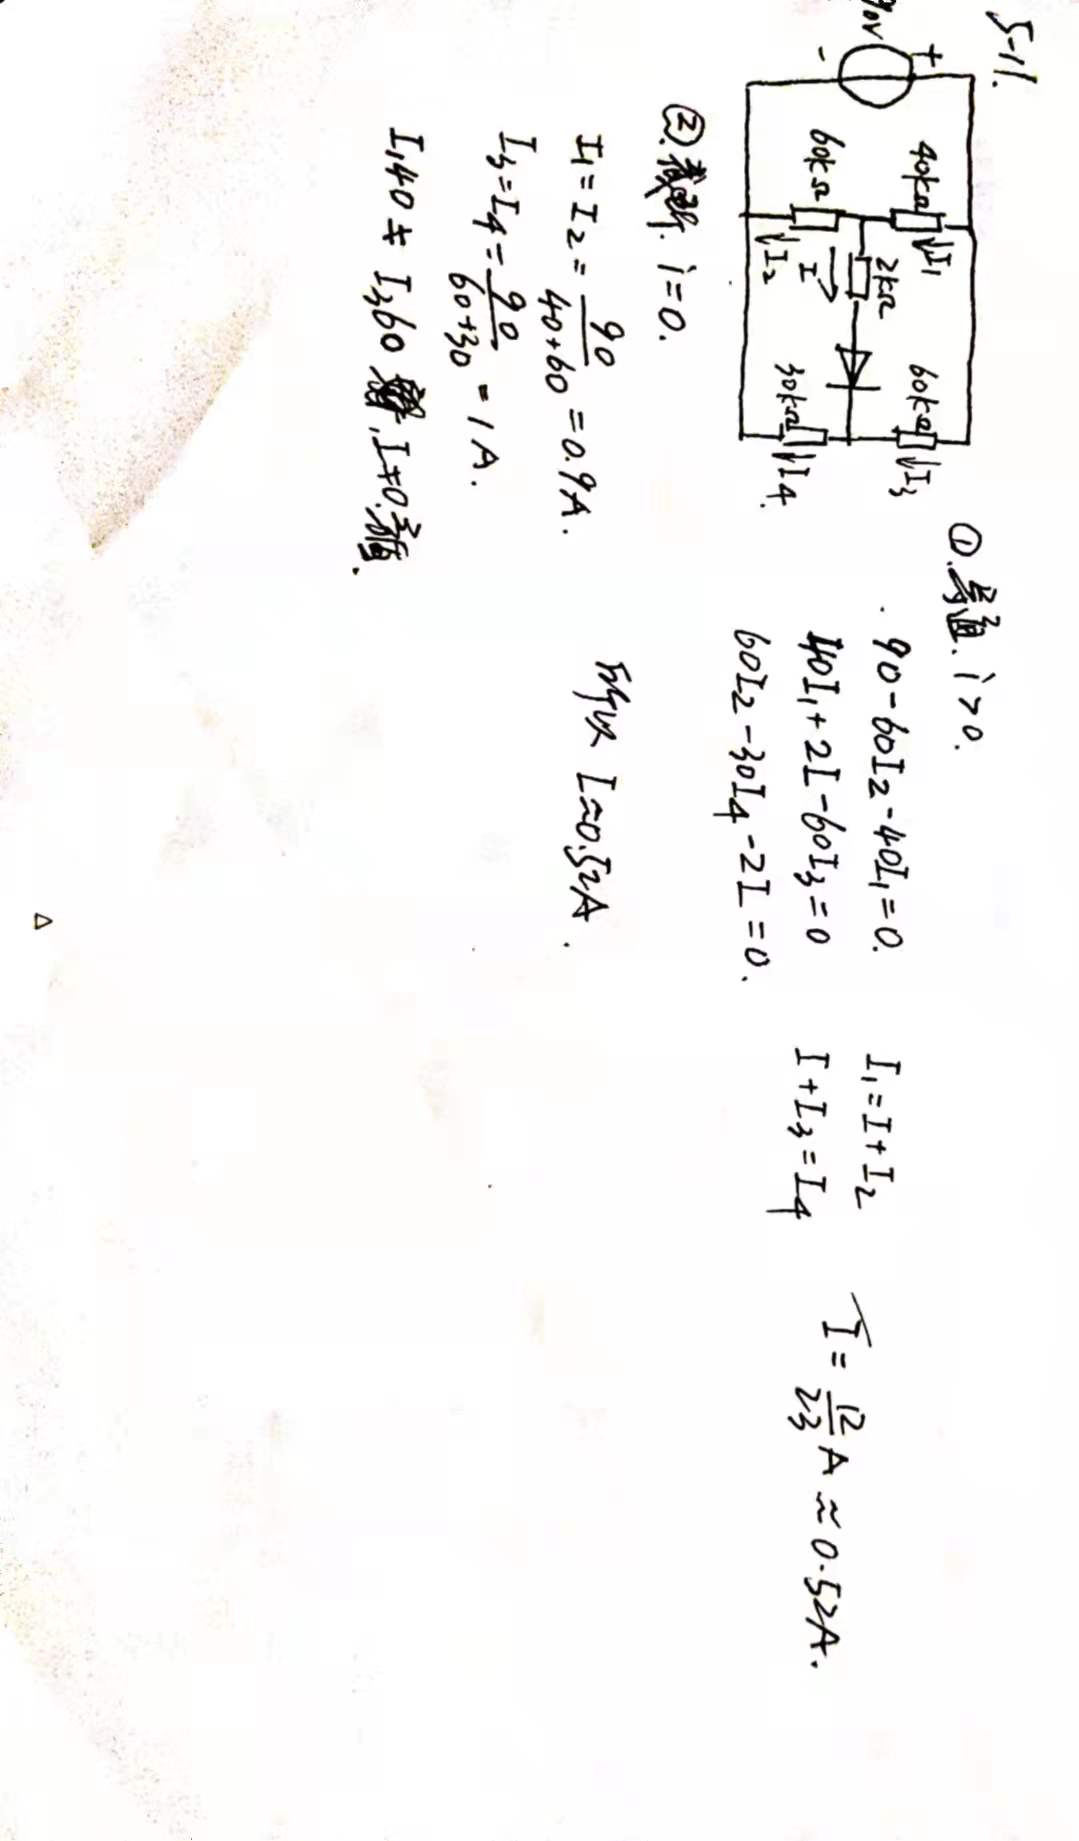 5-11.
90V
+
-
40kΩ
↓I₁
60kΩ
↓I₂
2kΩ
I
60kΩ
↓I₃
30kΩ
↓I₄.
①.导通. i>0.
90-60I₂-40I₁=0.
40I₁+2I-60I₃=0
60I₂-30I₄-2I=0.
I₁=I+I₂
I+I₃=I₄
I=12/23 A≈0.52A.
②.截断. i=0.
I₁=I₂=90/(40+60)=0.9A.
I₃=I₄=90/(60+30)=1A.
I₁40≠I₃60 , I≠0.导通.
所以 I≈0.52A.